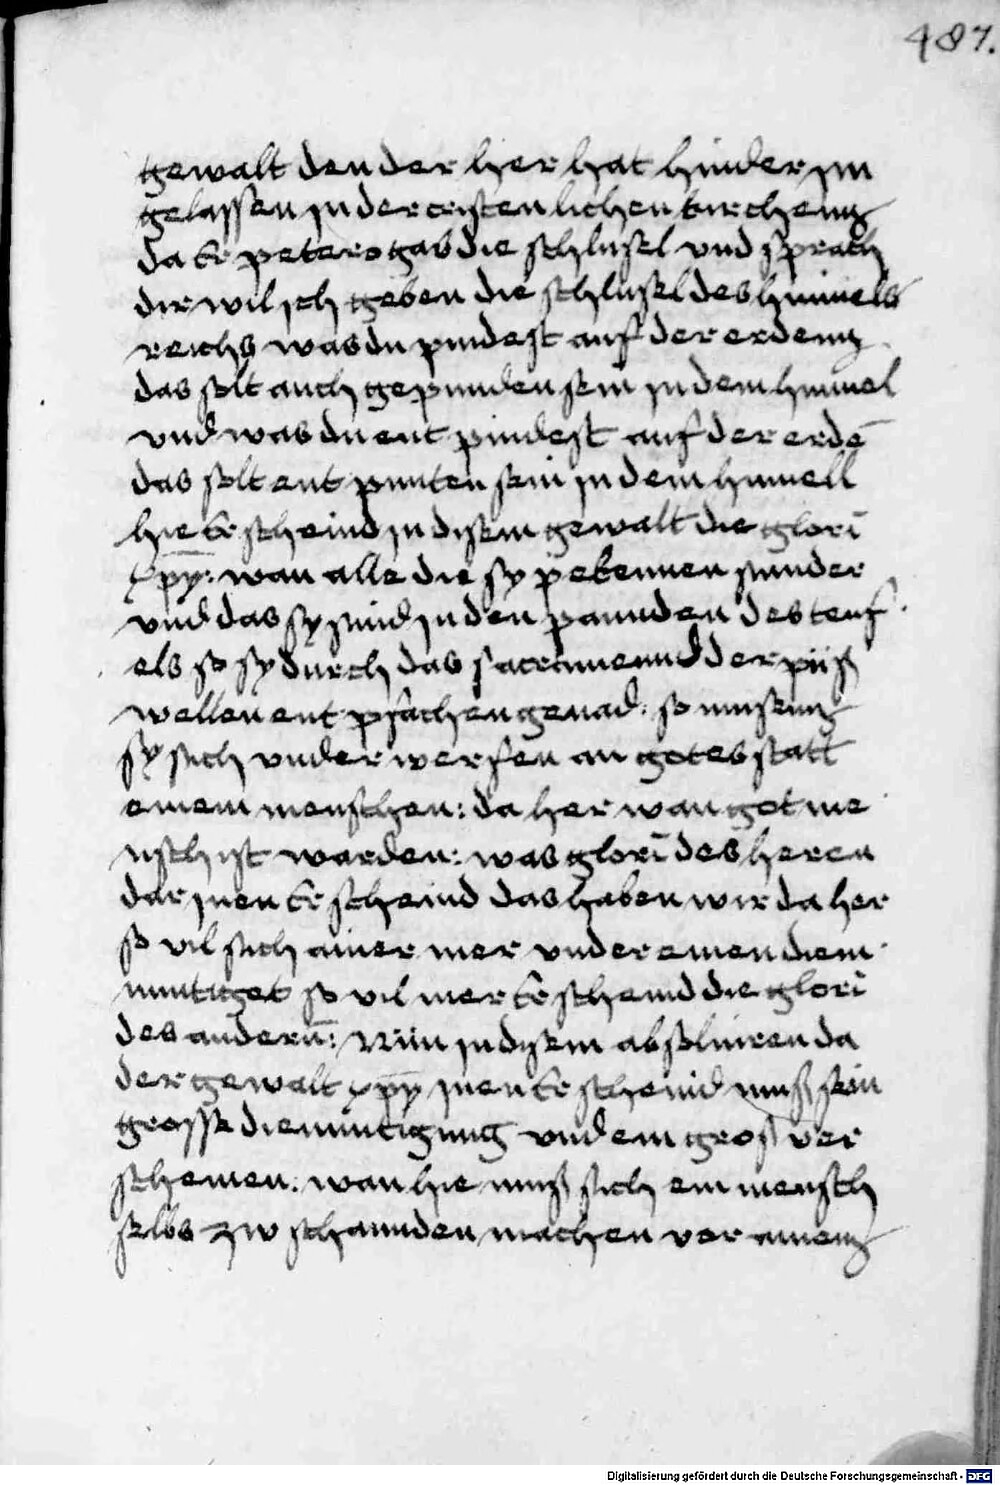 487.
gewalt den der her hat hinder im
gelassen in der cristenlichen kirchenn
da Er peteros gab die schlusel und sprach
dir wil ich geben die schlusel des himels
reichs was du pindest auf der erdenn
das solt auch gepunden sein in dem himel
und was du ent pindest auf der erdē
das solt ent punten sein in dem himell
hie Erscheind in disem gewalt die glori
xp̄y: wan alle die sy pekennen sunder
und das sy sind in den pannden des teuf
els so sy durch das sacramennd der puß
wellen ent pfachen genad: so musenn
sy sich under werfen an gotes statt
einem menschen: da her wan got me
nsch ist warden: was glori des heren
dar inen Erscheind das haben wir da her
so vil sich ainer mer under einen diem
muttiget so vil mer Erscheind die glori
des anderñ: Nun in disem absoluiren da
der gewalt xp̄y inen Erscheind muß sein
grosse diemuttigung und ein groß ver
schemen: wan hie muß sich ein mensch
selbs zw schannden machen vor ainenn
Digitalisierung gefördert durch die Deutsche Forschungsgemeinschaft - DFG